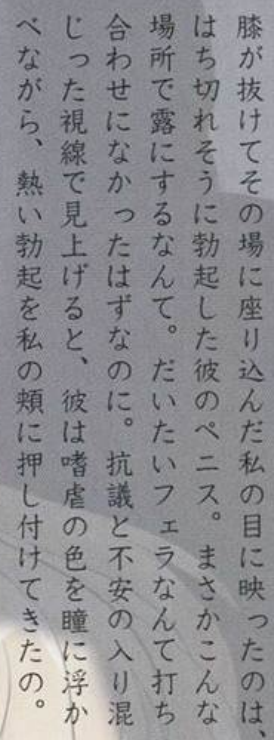 膝が抜けてその場に座り込んだ私の目に映ったのは、
はち切れそうに勃起した彼のペニス。まさかこんな
場所で露にするなんて。だいたいフェラなんて打ち
合わせになかったはずなのに。抗議と不安の入り混
じった視線で見上げると、彼は嗜虐の色を瞳に浮か
べながら、熱い勃起を私の頬に押し付けてきたの。